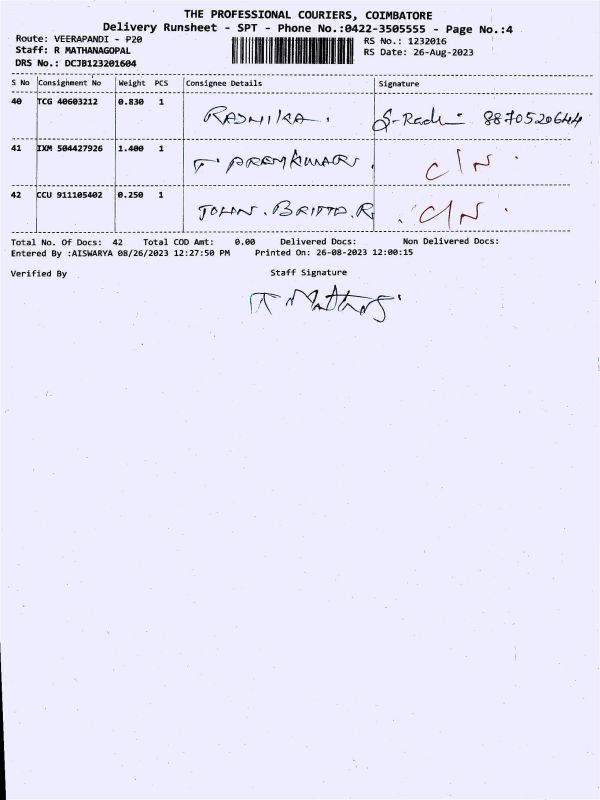 THE PROFESSIONAL COURIERS, COIMBATORE
Delivery Runsheet - SPT - Phone No.:0422-3505555 - Page No.:4
Route: VEERAPANDI - P20 RS No.: 1232016
Staff: R MATHANAGOPAL RS Date: 26-Aug-2023
DRS No.: DCJB123201604
S No Consignment No Weight PCS Consignee Details Signature
40 TCG 40603212 0.830 1 RADHIKA. S-Radhi 8870520644
41 IXM 504427926 1.400 1 T. PREMKUMAR. C/N
42 CCU 911105402 0.250 1 JOHN. BRITTO. R C/N
Total No. Of Docs: 42 Total COD Amt: 0.00 Delivered Docs: Non Delivered Docs:
Entered By :AISWARYA 08/26/2023 12:27:50 PM Printed On: 26-08-2023 12:00:15
Verified By Staff Signature